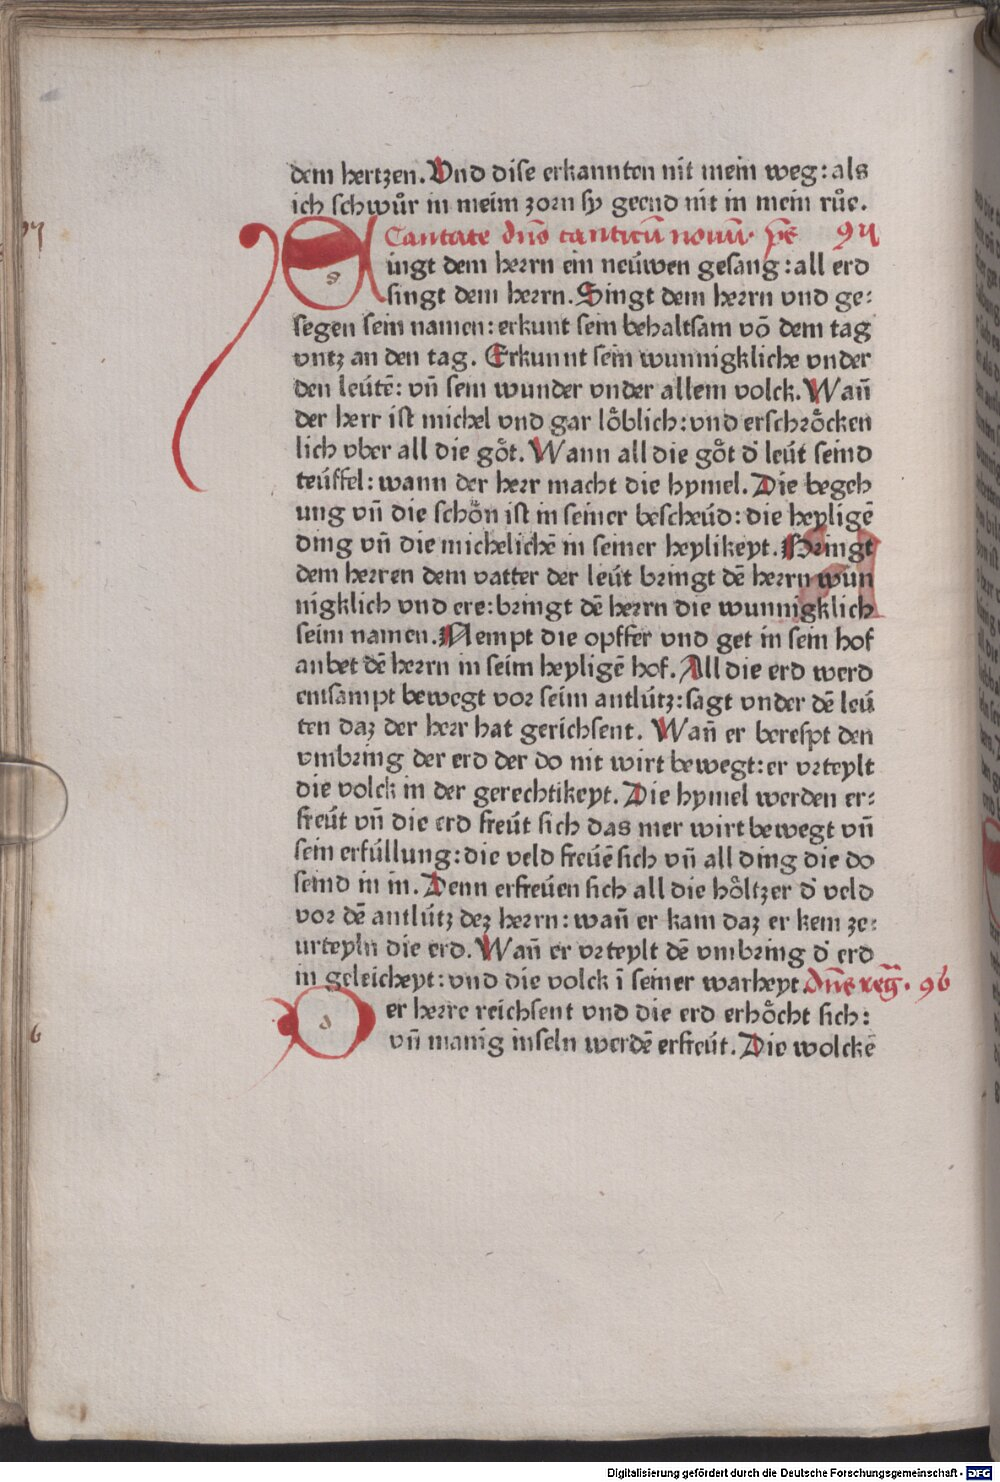 dem hertzen. Vnd dise erkannten nit mein weg: als
ich schwůr in meim zorn sy geend nit in mein růe.
Cantate dn̄o canticū nouū. ps̄
Singt dem herrn ein neúwen gesang: all erd
singt dem herrn. Singt dem herrn vnd ge:
segen sein namen: erkunt sein behaltsam vō dem tag
vntz an den tag. Erkunnt sein wunnigkliche vnder
den leútē: vn̄ sein wunder vnder allem volck. Wan̄
der herr ist michel vnd gar loͤblich: vnd erschroͤcken
lich vber all die goͤt. Wann all die goͤt d' leút seind
teúffel: wann der herr macht die hymel. Die begeh
ung vn̄ die schoͤn ist in seiner bescheúd: die heyligē
ding vn̄ die michelichē in seiner heylikeyt. Bringt
dem herren dem vatter der leút bringt dē herrn wun
nigklich vnd ere: bringt dē herrn die wunnigklich
seim namen. Nempt die opffer vnd get in sein hof
anbet dē herrn in seim heyligē hof. All die erd werd
entsampt bewegt vor seim antlútz: sagt vnder dē leú
ten daz der herr hat gerichsent. Wan̄ er berespt den
vmbring der erd der do nit wirt bewegt: er vrteylt
die volck in der gerechtikeyt. Die hymel werden er:
freút vn̄ die erd freút sich das mer wirt bewegt vn̄
sein erfúllung: die veld freúē sich vn̄ all ding die do
seind in in. Denn erfreúen sich all die hoͤltzer d' veld
vor dē antlútz dez herrn: wan̄ er kam daz er kem ze:
urteyln die erd. Wan̄ er vrteylt dē vmbring d' erd
in geleicheyt: vnd die volck ī seiner warheyt. Dn̄s reg̃. 96
der herre reichsent vnd die erd erhoͤcht sich:
vn̄ manig inseln werdē erfreút. Die wolckē
Digitalisierung gefördert durch die Deutsche Forschungsgemeinschaft - DFG